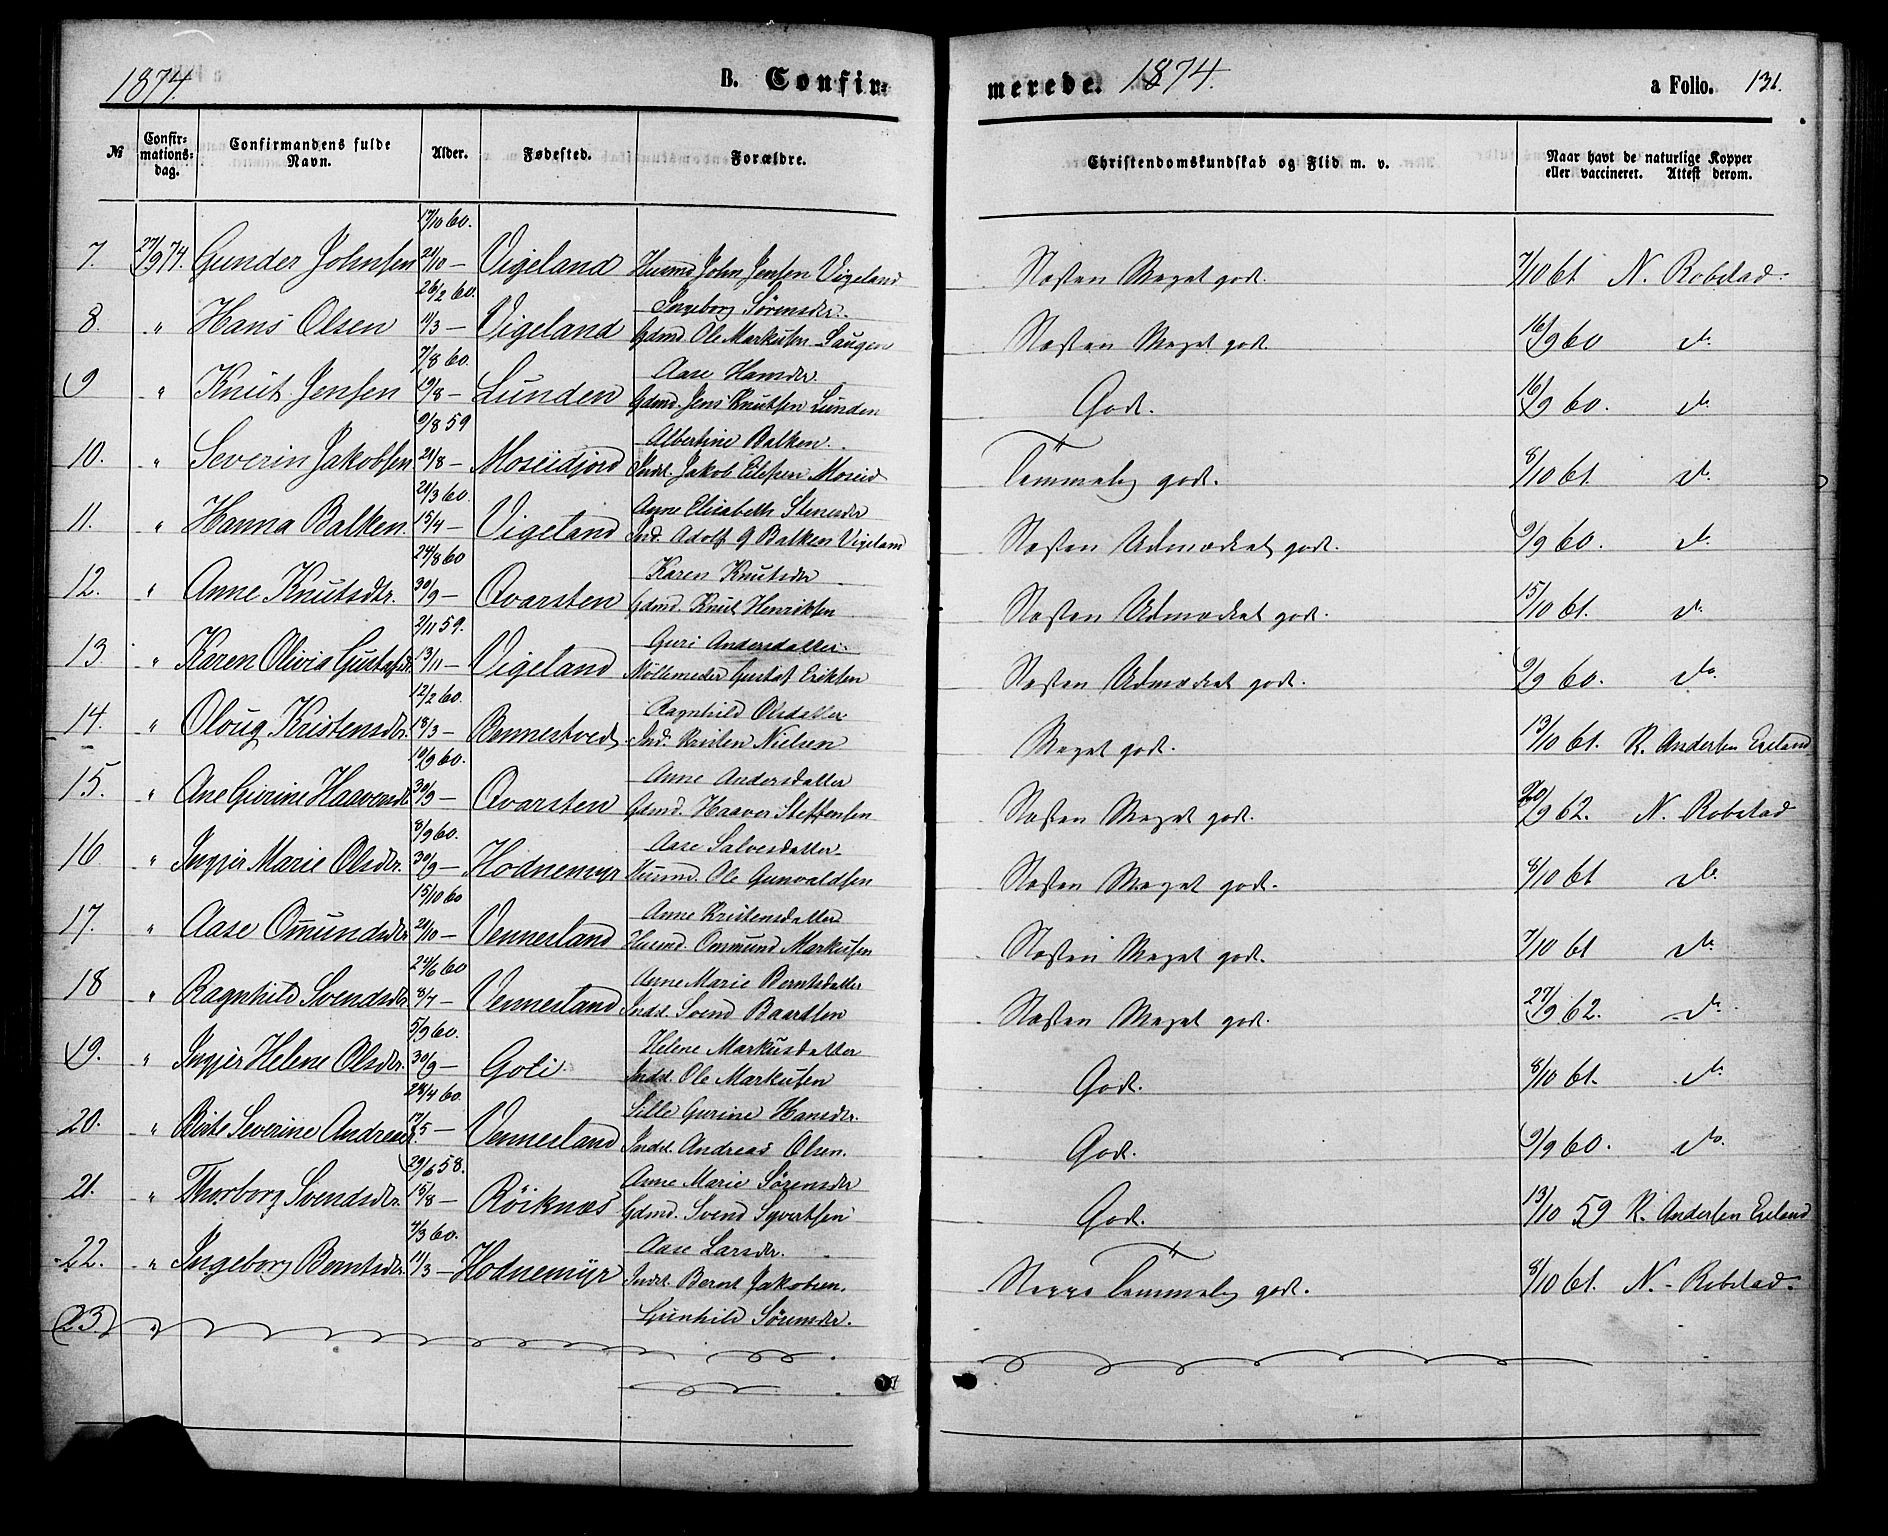 1874. B. Confir-
merede. 1874. a Folio. 131.
№ Confir-mations-dag. Confirmandens fulde Navn. Alder. Fødested. Forældre.
Christendomskundskab og Flid m. v. Naar havt de naturlige Kopper eller vaccineret. Attest derom.
17/10 60.
7. 27/9 74. Gunder Johnsen 21/10 – Vigeland Husmd John Jensen Vigeland Næsten Meget godt. 7/10 61 N. Robstad.
26/2 60. Ingeborg Sørensdr.
8. " Hans Olsen 11/3 – Vigeland Gdmd. Ole Markusen Haugen Næsten Meget godt. 16/9 60 do
7/8 60. Aase Hansdr.
9 " Knut Jensen 19/8 – Lunden Gdmd. Jens Knutsen Lunden Godt. 16/9 60. do
9/8 59 Albertine Balken.
10. " Severin Jakobsen 21/8 – Moseidjord Indst. Jakob Ellefsen Moseid Temmelig godt. 8/10 61. do
20/3 60. Anne Elisabeth Stensdr
11. " Hanna Balken. 15/4 – Vigeland Ind. Adolf G Balken Vigeland Næsten Udmærket godt. 9/9 60. do
24/8 60 Karen Knutsdr
12. " Anne Knutsdtr. 30/9 – Qvarsten Gdmd. Knut Henriksen Næsten Udmærket godt. 15/10 61. do
2/11 59. Guri Andersdatter.
13 " Karen Olivia Gustafsdr. 13/11 – Vigeland Møllemester Gustaf Eriksen Næsten Udmærket godt. 9/9 60. do
12/2 60. Ragnhild Olsdatter.
14. " Oloug Kristensdtr. 18/3 – Bennestved. Ind. Kristen Nielsen Meget godt. 13/10 61. R. Andersen Eieland
19/9 60. Anne Andersdatter
15. " Ane Gurine Haavorsdtr 30/9 – Qvarsten Gdmd. Haavor Steffensen Næsten Meget godt. 20/9 62. N. Robstad
8/9 60. Aase Salvesdatter
16 " Ingjer Marie Olsdtr. 30/9 – Hodnemyr Husmd. Ole Gunvaldsen Næsten Meget godt. 8/10 61 do
15/10 60 Anne Kristensdatter
17. " Aase Omundsdtr 20/10 – Vennesland Husmd. Ommund Markusen Næsten Meget godt. 7/10 61 do
24/6 60 Anne Marie Berntsdatter
18 " Ragnhild Svendsdtr. 8/7 – Vennesland Indst. Svend Baardsen Næsten Meget godt. 27/9 62. do
5/9 60. Helene Markusdatter
19. " Ingjer Helene Olsdtr. 30/9 – Goli Indst. Ole Markusen Godt. 8/10 61. do
28/4 60. Sille Gurine Hansdtr.
20. " Birte Severine Andreasdr. 17/5 – Vennesland Indst. Andreas Olsen. Godt. 9/9 60. do
29/6 58. Anne Marie Sørensdtr
21. " Thorborg Svendsdtr. 15/8 – Röiknæs Gdmd. Svend Syvertsen Godt. 13/10 59 R. Andersen Eieland
4/3 60. Aase Larsdtr.
22. " Ingeborg Berntsdtr. 11/3 – Hodnemyr Indst. Bernt Jakobsen. Neppe Temmelig godt. 8/10 61. N. Robstad.
23. " Gunhild Sørensdtr.